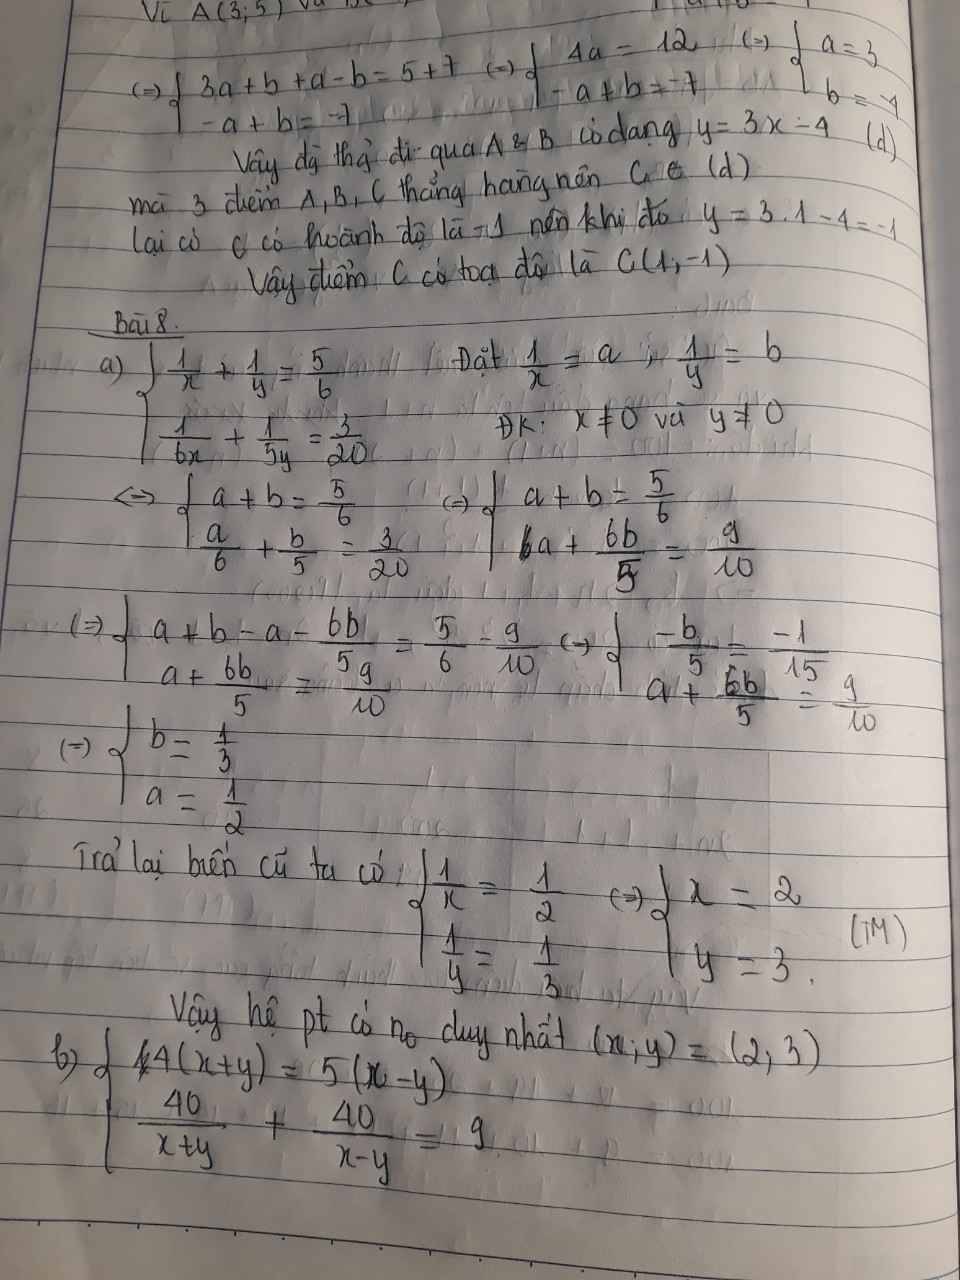 Vì A(3;5) và
(=) { 3a + b + a - b = 5 + 7 (=) { 4a = 12 (=) { a = 3
- a + b = -7 - a + b = -7 b = -4
Vậy đg thg đi qua A & B có dạng y = 3x - 4 (d)
mà 3 điểm A, B, C thẳng hàng nên C ∈ (d)
lại có C có hoành độ là 1 nên khi đó y = 3.1 - 4 = -1
Vậy điểm C có toạ độ là C(1;-1)
Bài 8.
a) { 1/x + 1/y = 5/6 Đặt 1/x = a ; 1/y = b
1/6x + 1/5y = 3/20 ĐK: x ≠ 0 và y ≠ 0
<=> { a + b = 5/6 (=) { a + b = 5/6
a/6 + b/5 = 3/20 a + 6b/5 = 9/10
(=) { a + b - a - 6b/5 = 5/6 - 9/10 (=) { -b/5 = -1/15
a + 6b/5 = 9/10 a + 6b/5 = 9/10
(=) { b = 1/3
a = 1/2
Trả lại biến cũ ta có { 1/x = 1/2 (=) { x = 2
1/y = 1/3 y = 3. (TM)
Vậy hệ pt có no duy nhất (x;y) = (2;3)
b) { 4(x+y) = 5(x-y)
40/x+y + 40/x-y = 9